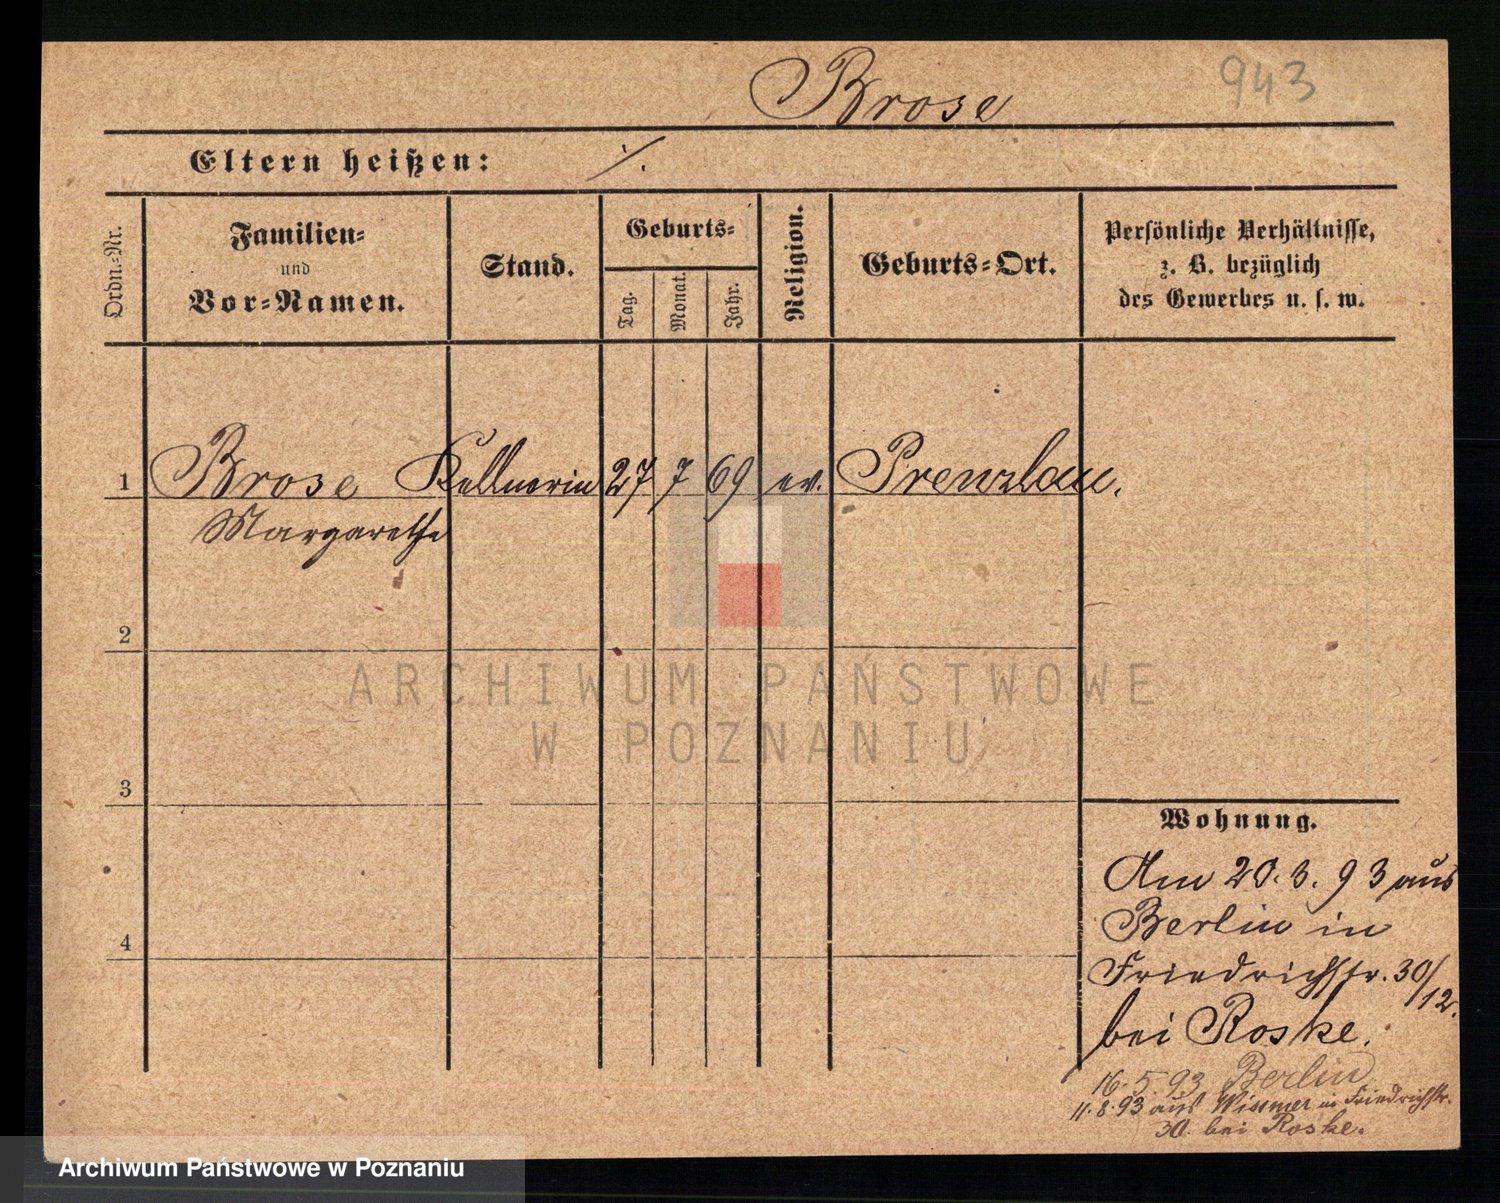 Brose
943
Eltern heißen: ./.
Ordn.-Nr.
Familien-
und
Vor-Namen.
Stand.
Geburts-
Tag.
Monat.
Jahr.
Religion.
Geburts-Ort.
Persönliche Verhältnisse,
z. B. bezüglich
des Gewerbes u. s. w.
1 Brose Kellnerin 27 7 69 ev. Prenzlau.
Margarethe
2
3
4
ARCHIWUM PAŃSTWOWE
W POZNANIU
Wohnung.
Am 20. 3. 93 aus
Berlin in
Friedrichstr. 30/12.
bei Roske.
16. 5. 93 Berlin
11. 8. 93 aus Wismar in Friedrichstr.
30. bei Roske.
Archiwum Państwowe w Poznaniu